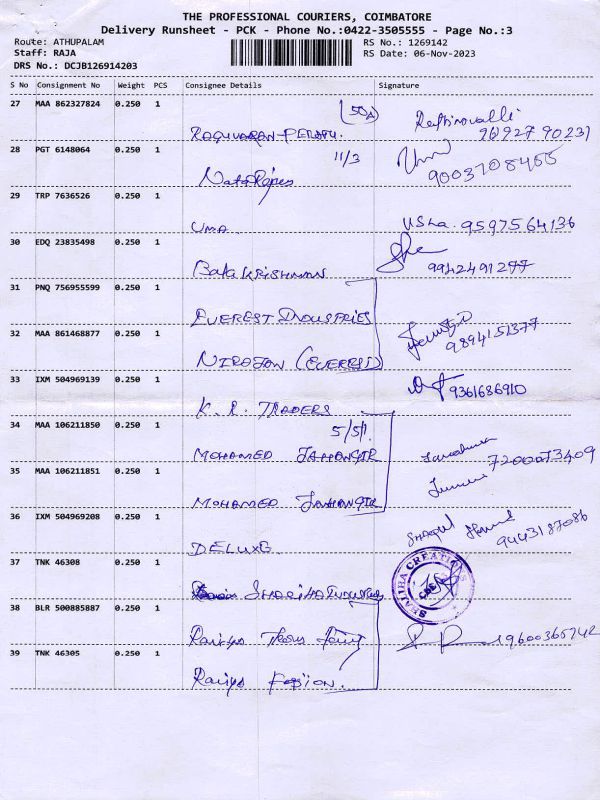 THE PROFESSIONAL COURIERS, COIMBATORE
Delivery Runsheet - PCK - Phone No.:0422-3505555 - Page No.:3
Route: ATHUPALAM RS No.: 1269142
Staff: RAJA RS Date: 06-Nov-2023
DRS No.: DCJB126914203
S No Consignment No Weight PCS Consignee Details Signature
27 MAA 862327824 0.250 1
50A
96927 90231
28 PGT 6148064 0.250 1
11/3
9003708455
29 TRP 7636526 0.250 1
UMA USha. 9597564136
30 EDQ 23835498 0.250 1
BalaKRISHNAN 9942491277
31 PNQ 756955599 0.250 1
EVEREST INDUSTRIES
32 MAA 861468877 0.250 1
9894151377
NIROJAN (EVEREST)
33 IXM 504969139 0.250 1
9361686910
K. R. TRADERS
34 MAA 106211850 0.250 1
5/51.
MOHAMED JAHANGIR 7200073409
35 MAA 106211851 0.250 1
MOHAMED JAHANGIR
36 IXM 504969208 0.250 1
9443187086
DELUXE
37 TNK 46308 0.250 1
CREATIONS
CBE
38 BLR 500885887 0.250 1
19600365742
39 TNK 46305 0.250 1